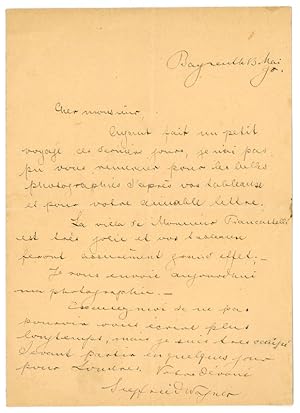 Bayreuth 13 Mai
Cher monsieur,
Ayant fait un petit
voyage ces derniers jours, je n'ai pas
pu vous remercier pour les belles
photographies d'après vos tableaux
et pour votre aimable lettre.
La villa de Monsieur
est très jolie et vos tableaux
feront assurément grand effet.-
Je vous envoie aujourd'hui
ma photographie.-
Excusez moi de ne pas
pouvoir vous écrire plus
longtemps, mais je suis très occupé
devant partir en quelques jours
pour Londres. Votre dévoué
Siegfried Wagner